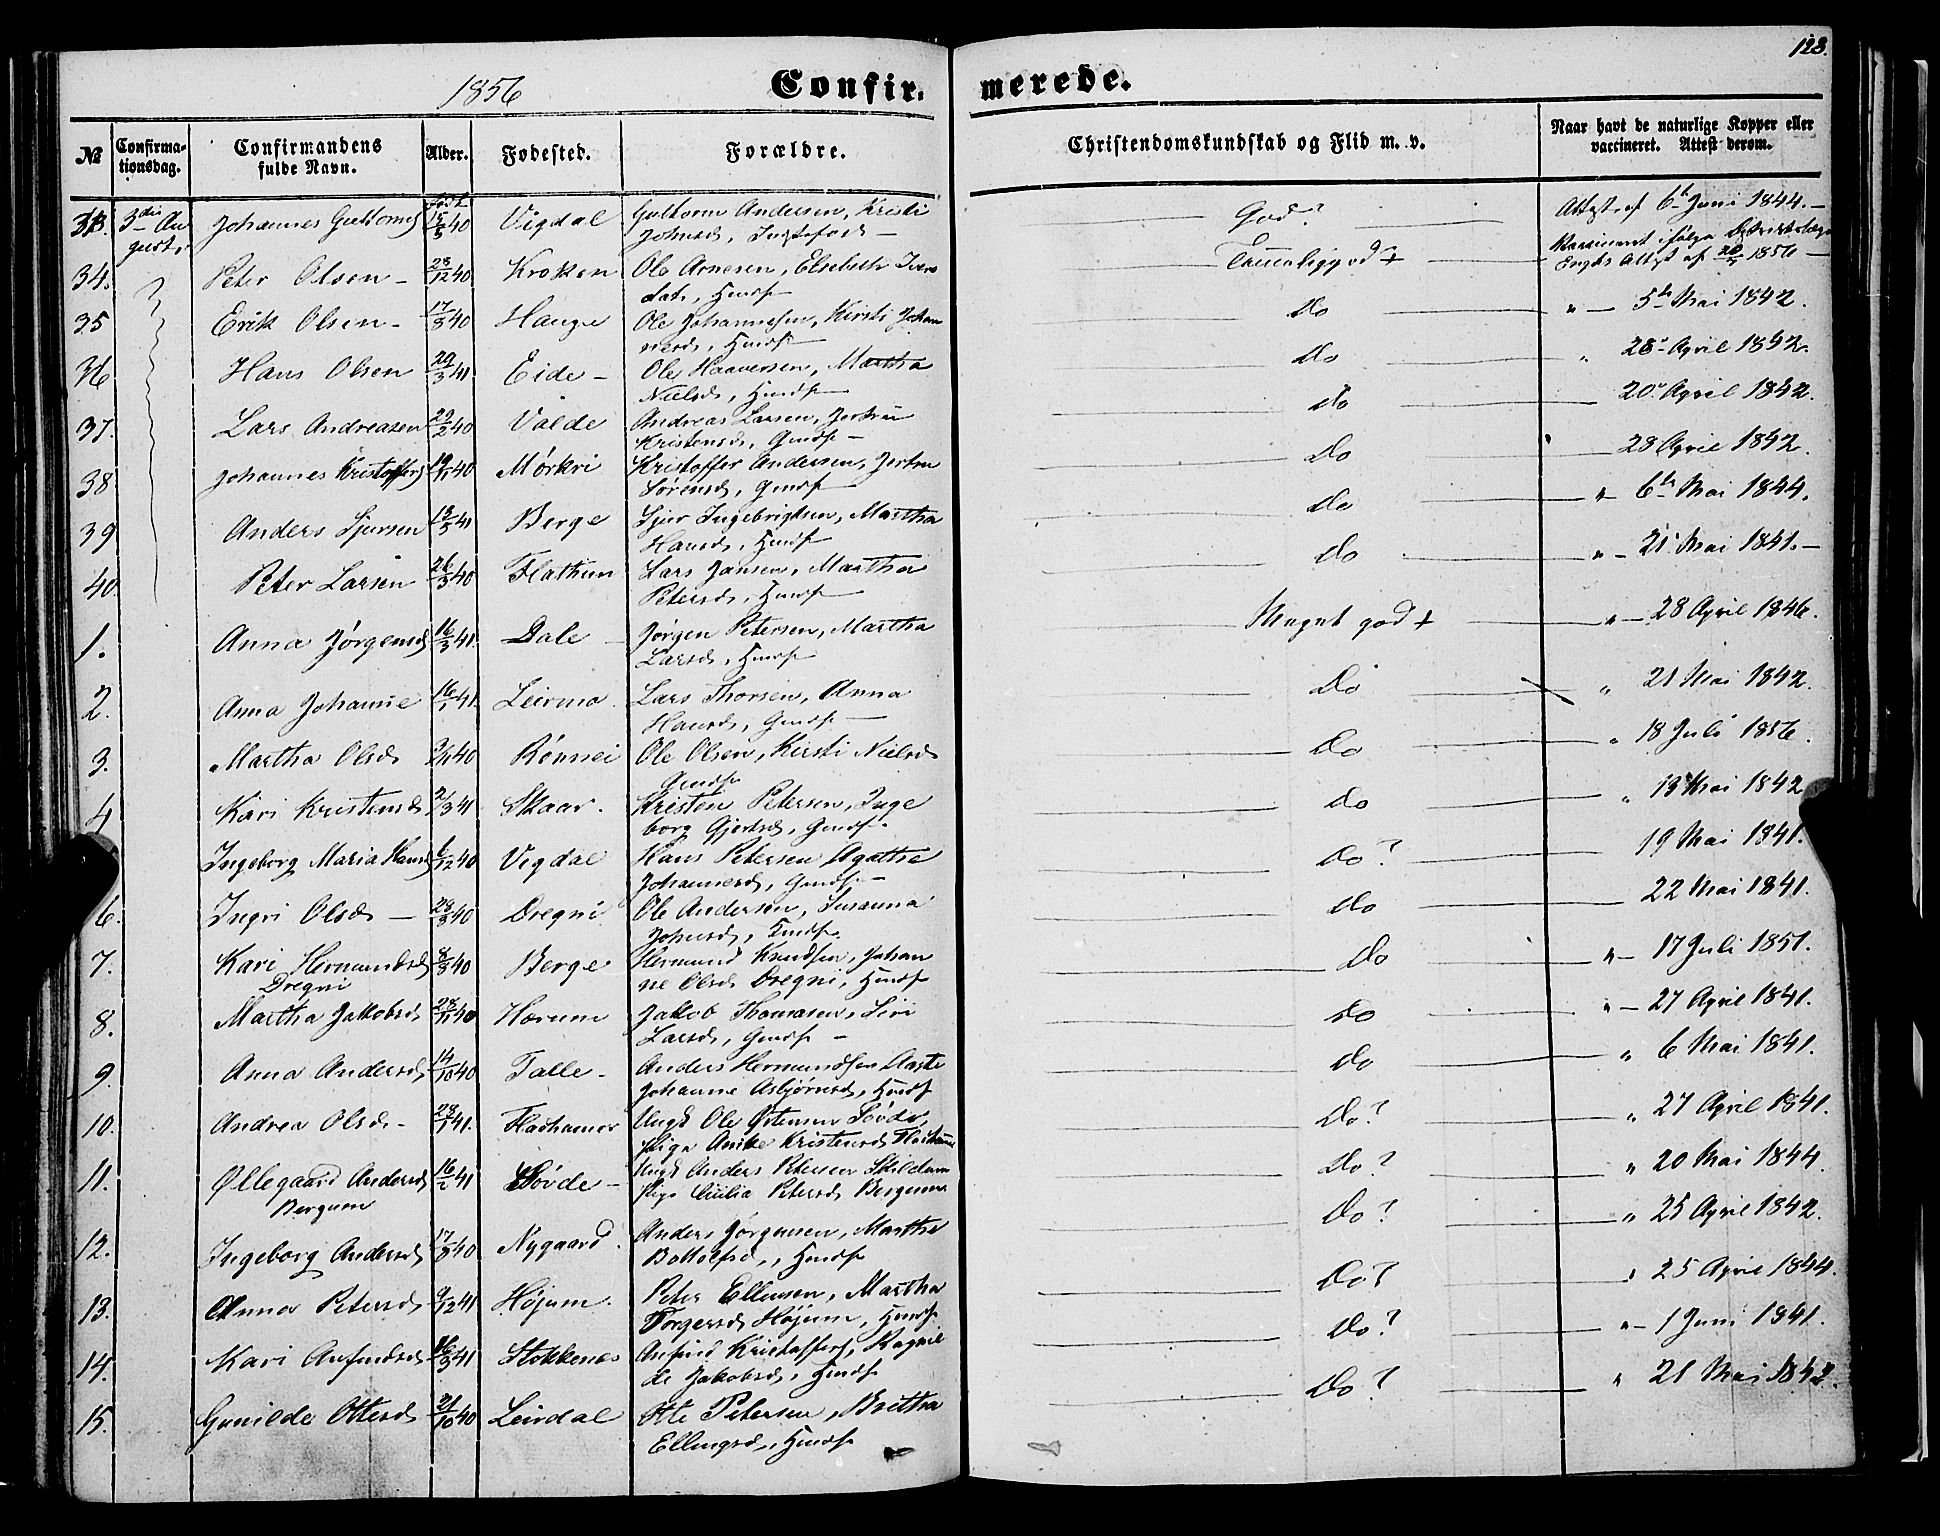 123.
1856 Confirmerede.
№ Confirmationsdag. Confirmandens fulde Navn. Alder. Fødested. Forældre. Christendomskundskab og Flid m. v. Naar havt de naturlige Kopper eller vaccineret. Attest derom.
33. 3die August. Johannes Guttorms født 15/5 40 Vigdal Guttorm Andersen, Kristi God? Attest af 6te Juni 1844.
Johnsd,
34. Peter Olsen 23/12 40 Krokken Ole Arnesen, Elsebeth Iversdatr, Hmdsf Temmelig god + Vaccineret ifølge Attest af 1856
35 Erik Olsen 17/3 40 Hauge Ole Johannesen, Kirsti Johannesd, Hmdsf Do " 5te Mai 1842.
36 Hans Olsen 29/3 41 Eide Ole Haaversen, Martha Nielsd, Hmdsf Do " 28 April 1842.
37. Lars Andreasen 29/2 40 Valde Andreas Larsen, Jertru Kristensd, Gmdsf Do 20 April 1842.
38 Johannes Kristoffers 19/11 40 Mørkri Kristoffer Andersen, Jertru Sørensd, Gmdsf Do 28 April 1842.
39 Anders Sjursen 13/3 41 Berge Sjur Ingebrigtsen, Martha Hansd, Hmdsf Do " 6te Mai 1844.
40. Peter Larsen 26/3 40 Flathun Lars Jansen, Martha Petersd, Hmdsf Do " 21 Mai 1841.
1. Anna Jørgensd 16/3 41. Dale Jørgen Petersen, Martha Larsd, Hmdsf Meget god + " 28 April 1846.
2. Anna Johanne 16/1 41. Leirmo Lars Thorsen, Anna Hansd, Gmdsf Do " 21 Mai 1842.
3. Martha Olsd 40 Rønnei Ole Olsen, Kirsti Nielsd Gmdsf Do " 18 Juli 1856.
4 Kari Kristensd 2/3 41 Skaar. Kristen Petersen, Ingeborg Gjertsd, Gmdsf. Do " 13 Mai 1842
Ingeborg Maria Hansd 6/12 40 Vigdal Hans Petersen Agathe Johannesd, Gmdsf Do? 19 Mai 1841.
6. Ingri Olsd 23/3 40 Dregni Ole Andersen, Susanna Johnsd, Hmdsf. Do 22 Mai 1841.
7. Kari Hermundsd Dregni 8/3 40 Berge Hermund Knudsen, Johanne Olsd Dregni, Hmdsf Do " 17 Juli 1851.
8. Martha Jakobsd 28/11 40 Hærum Jakob Thomasen, Siri Larsd, Gmdsf Do " 27 April 1841.
9. Anna Andersd 14/10 40 Talle Anders Hermundsen Aaste Johanne Asbjørnsd, Hmdsf Do " 6 Mai 1841.
10. Andrea Olsd 28/1 41. Flahamer Ungk Ole Ottesen Søvde, Pige Anike Kristensd Do? " 27 April 1841.
11. Øllegaard Andersd Bergum 16/2 41 Søvde Ungk Anders Petersen Pige Petersd Bergum Do? " 20 Mai 1844.
12. Ingeborg Andersd 17/3 40 Nygaard. Anders Jørgensen, Marthe Bottolfsd, Hmdsf Do? " 25 April 1842.
13. Anna Petersd 9/12 41 Højum. Peter Ellensen, Martha Torgersd Højum, Hmdsf Do? 25 April 1844.
14. Kari Anfindsd 16/3 41 Stokkenes Anfind Kristoffers, Ragnilde Jakobsd, Hmdsf Do? " 1 Juni 1841.
15. Gunilde Ottesd 21/10 40 Leirdal Otte Petersen, Brithe Ellingsd, Hmdsf Do? " 21 Mai 1842.